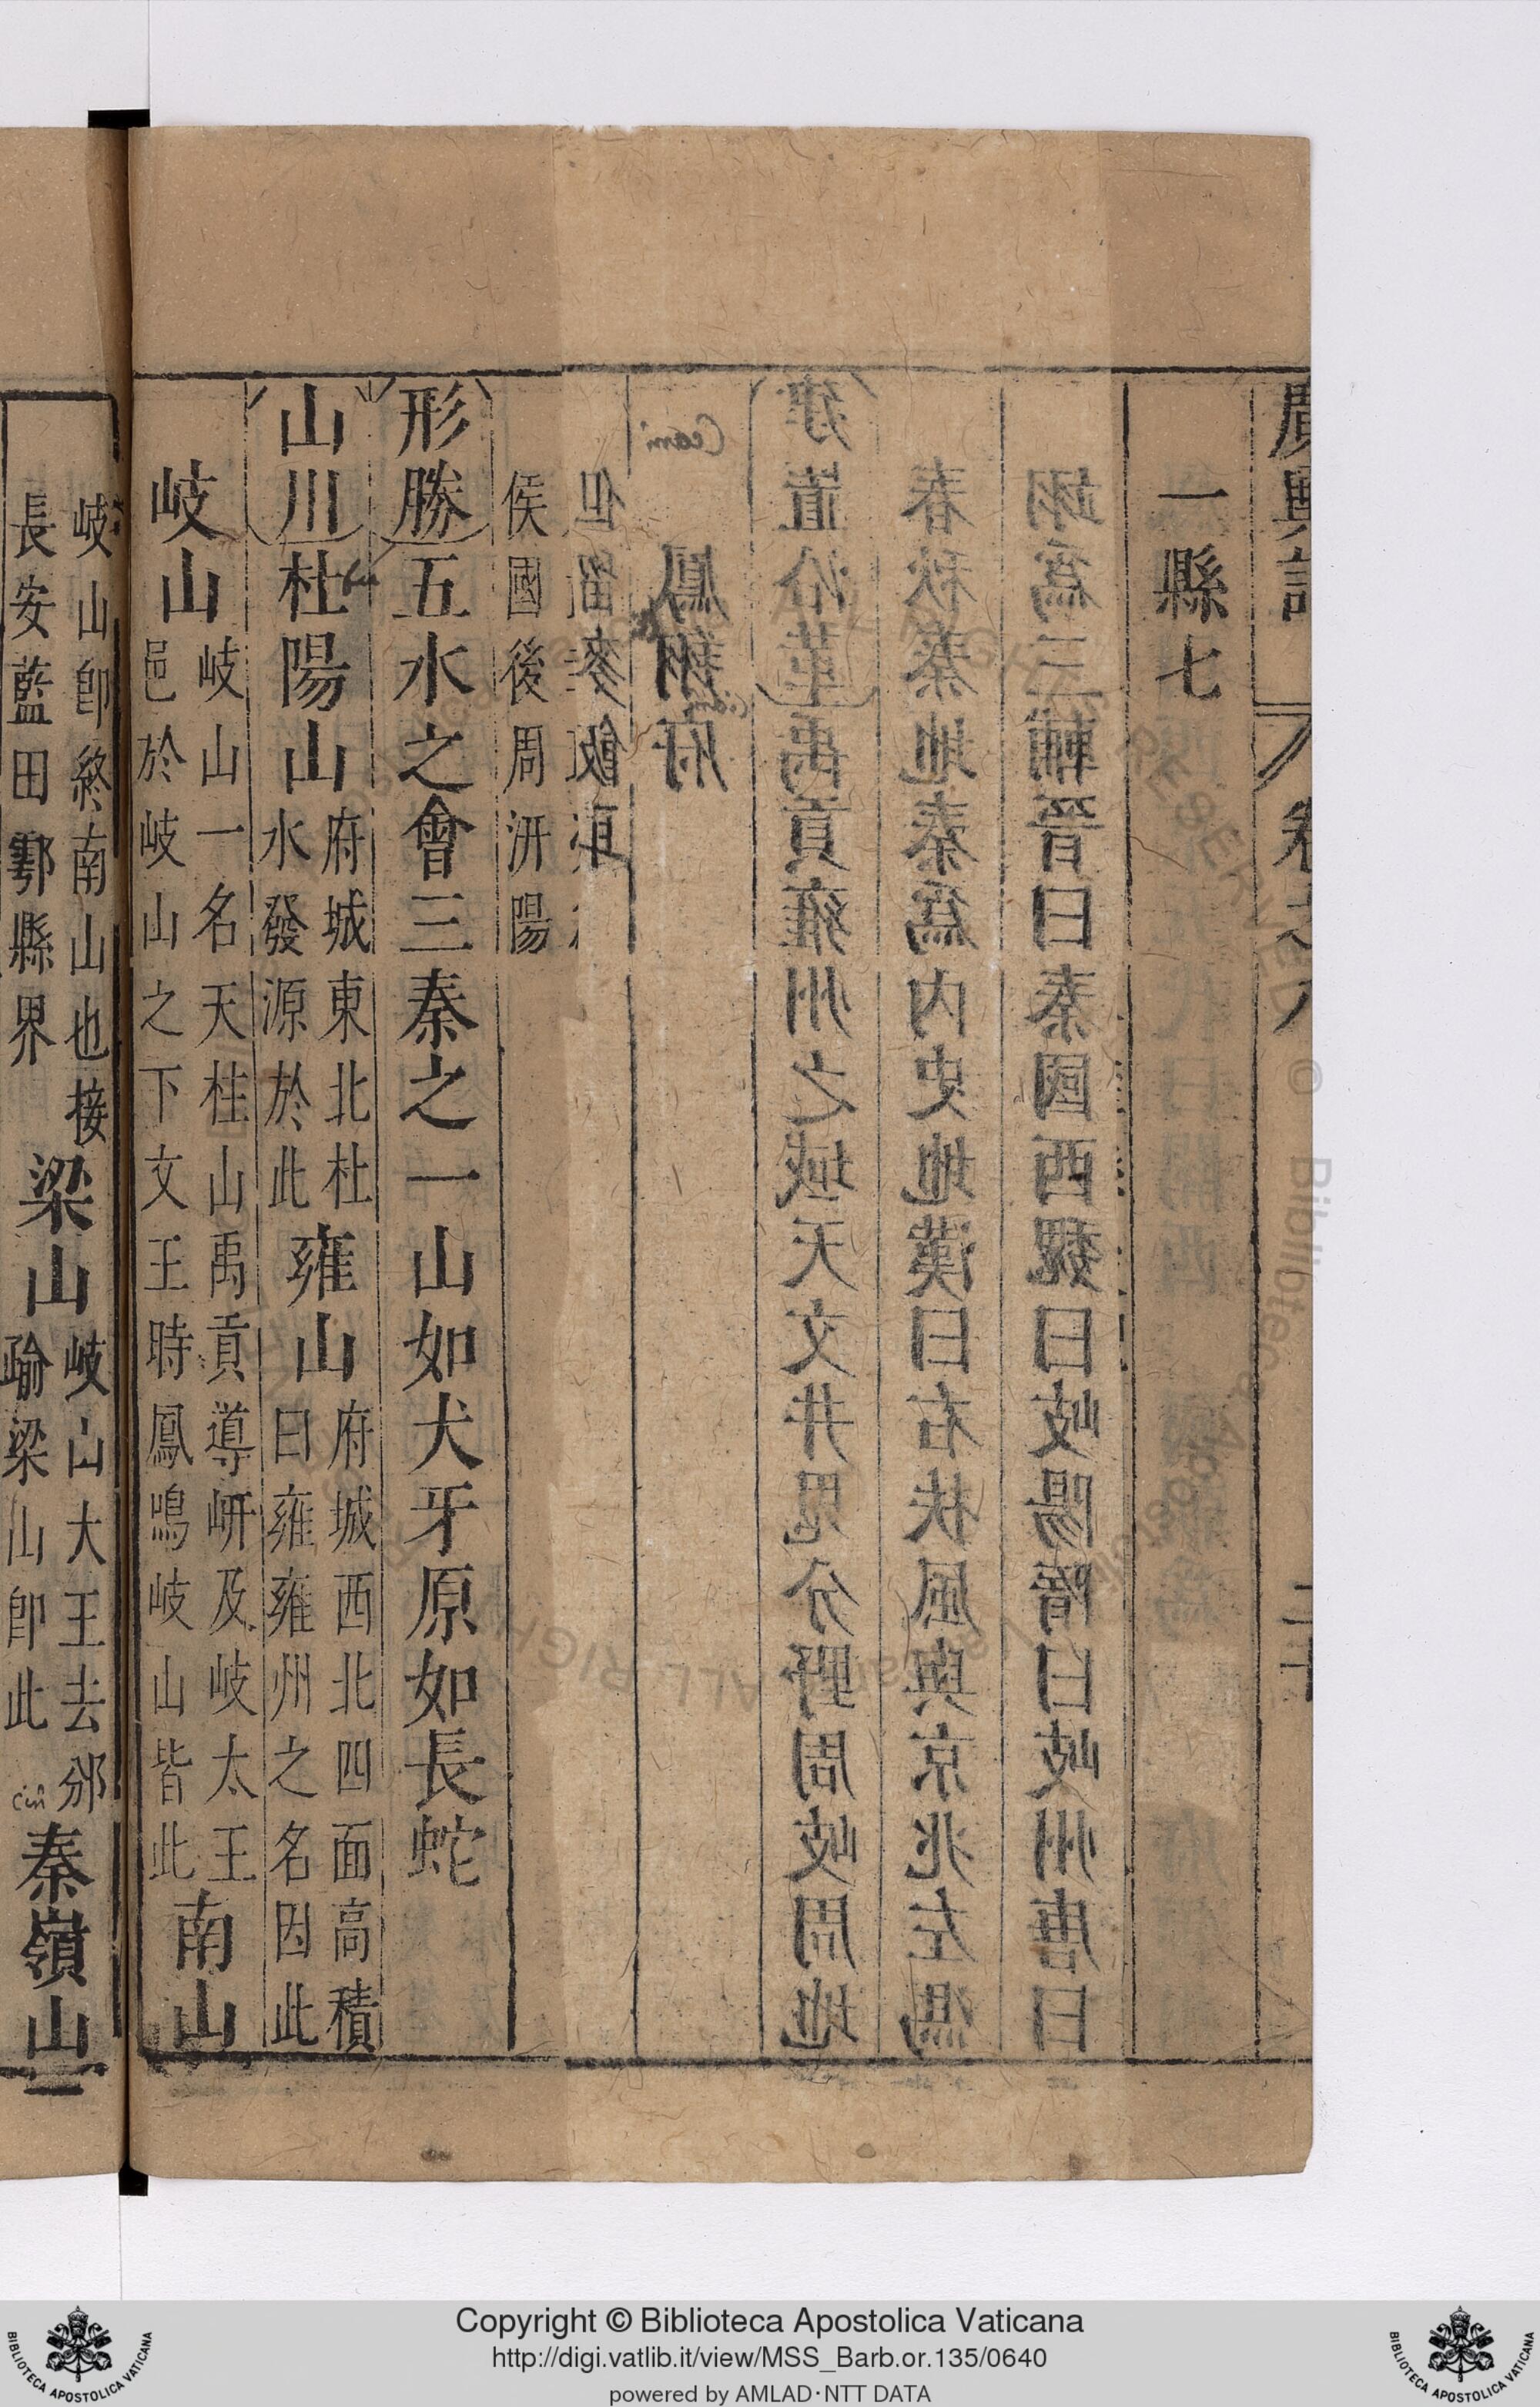 廣輿記
卷之八
二十
一縣七
翊爲三輔晉曰秦國西魏曰岐陽隋曰岐州唐曰
春秋秦地秦爲內史地漢曰右扶風與京兆左馮
建置沿革禹貢雍州之域天文井鬼分野周岐周地
鳳翔府
但留麥飯耳
侯國後周汧陽
形勝五水之會三秦之一山如犬牙原如長蛇
山川杜陽山府城東北杜
水發源於此雍山府城西北四面高積
曰雍雍州之名因此
岐山岐山一名天柱山禹貢導岍及岐太王
邑於岐山之下文王時鳳鳴岐山皆此南山
岐山卽終南山也接
長安藍田鄠縣界梁山岐山大王去邠
踰梁山卽此秦嶺山
Copyright © Biblioteca Apostolica Vaticana
http://digi.vatlib.it/view/MSS_Barb.or.135/0640
powered by AMLAD·NTT DATA
BIBLIOTECA APOSTOLICA VATICANA
BIBLIOTECA APOSTOLICA VATICANA